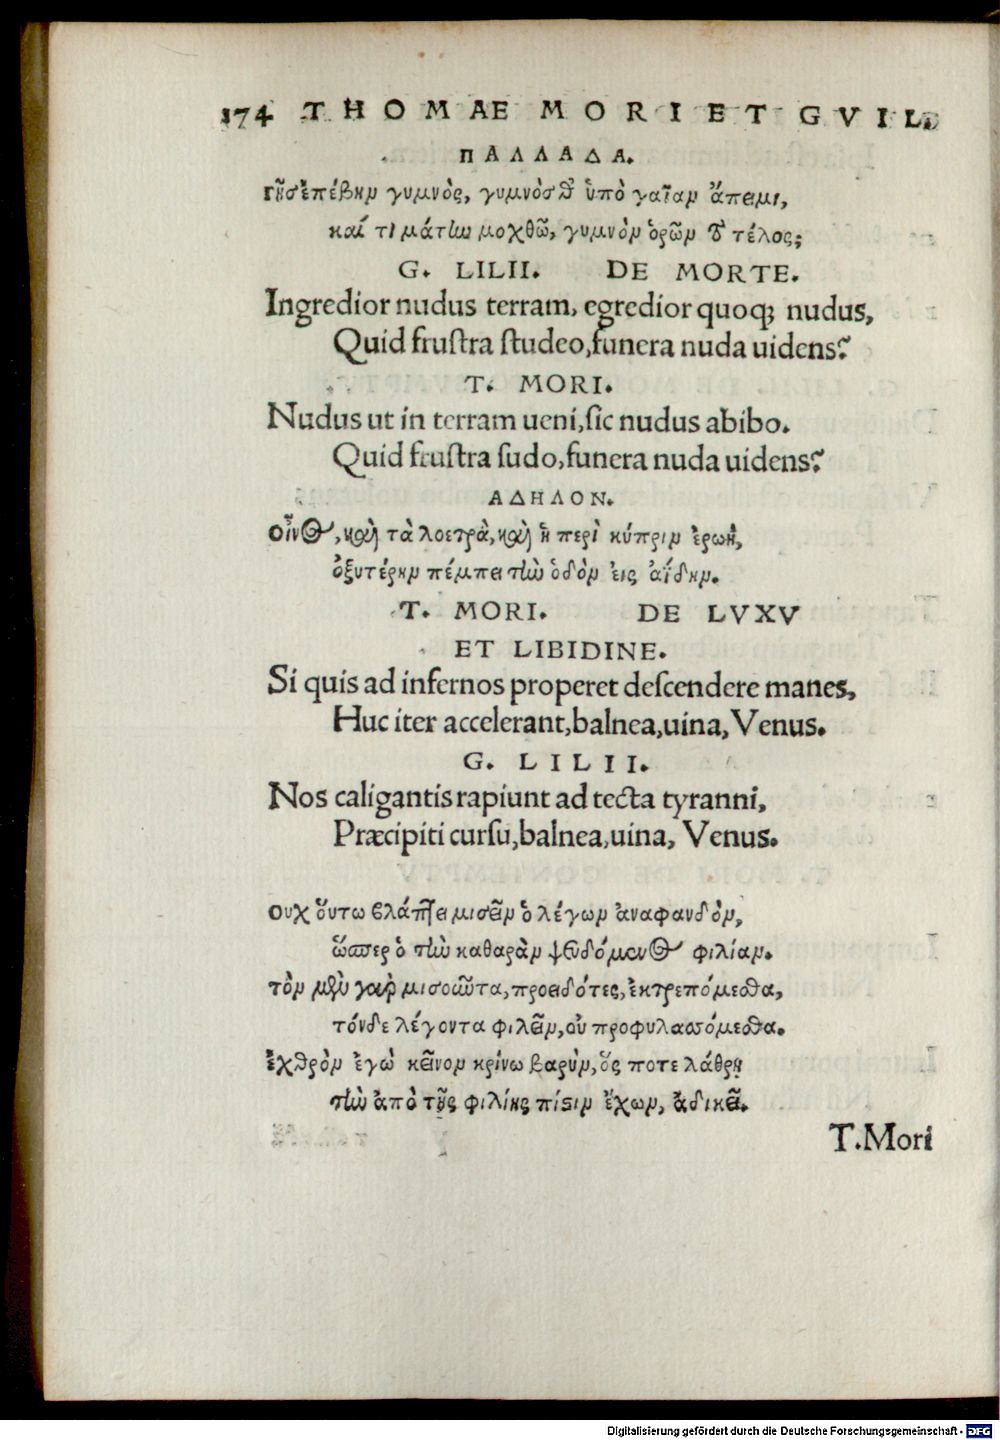 174 THOMAE MORI ET GVILL
ΠΑΛΛΑΔΑ.
Γῆς ἐπέβην γυμνὸς, γυμνὸς θ' ὑπὸ γαῖαν ἄπειμι,
καὶ τί μάτην μοχθῶ, γυμνὸν ὁρῶν τὸ τέλος;
G. LILII. DE MORTE.
Ingredior nudus terram, egredior quoq; nudus,
Quid fruſtra ſtudeo,funera nuda uidens?
T. MORI.
Nudus ut in terram ueni,ſic nudus abibo.
Quid fruſtra ſudo,funera nuda uidens?
ΑΔΗΛΟΝ.
Οἶνος, καὶ τὰ λοετρὰ, καὶ ἡ περὶ κύπριν ἐρωὴ,
ὀξυτέρην πέμπει τὴν ὁδὸν εἰς ἀΐδην.
T. MORI. DE LVXV
ET LIBIDINE.
Si quis ad infernos properet deſcendere manes,
Huc iter accelerant,balnea,uina, Venus.
G. LILII.
Nos caligantis rapiunt ad tecta tyranni,
Præcipiti curſu,balnea,uina, Venus.
Οὐχ ὅυτω βλάπτει μισεῖν ὁ λέγων ἀναφανδὸν,
ὥσπερ ὁ τὴν καθαρὰν ψευδόμενος φιλίαν.
τὸν μὲν γὰρ μισοῦντα, προειδότες, ἐκτρεπόμεσθα,
τόνδε λέγοντα φιλεῖν, οὐ προφυλασσόμεσθα.
ἐχθρὸν ἐγὼ κεῖνον κρίνω βαρὺν, ὅς ποτε λάθρη
τὴν ἀπὸ τῆς φιλίης πίστιν ἔχων, ἀδικεῖ.
T.Mori
Digitalisierung gefördert durch die Deutsche Forschungsgemeinschaft - DFG